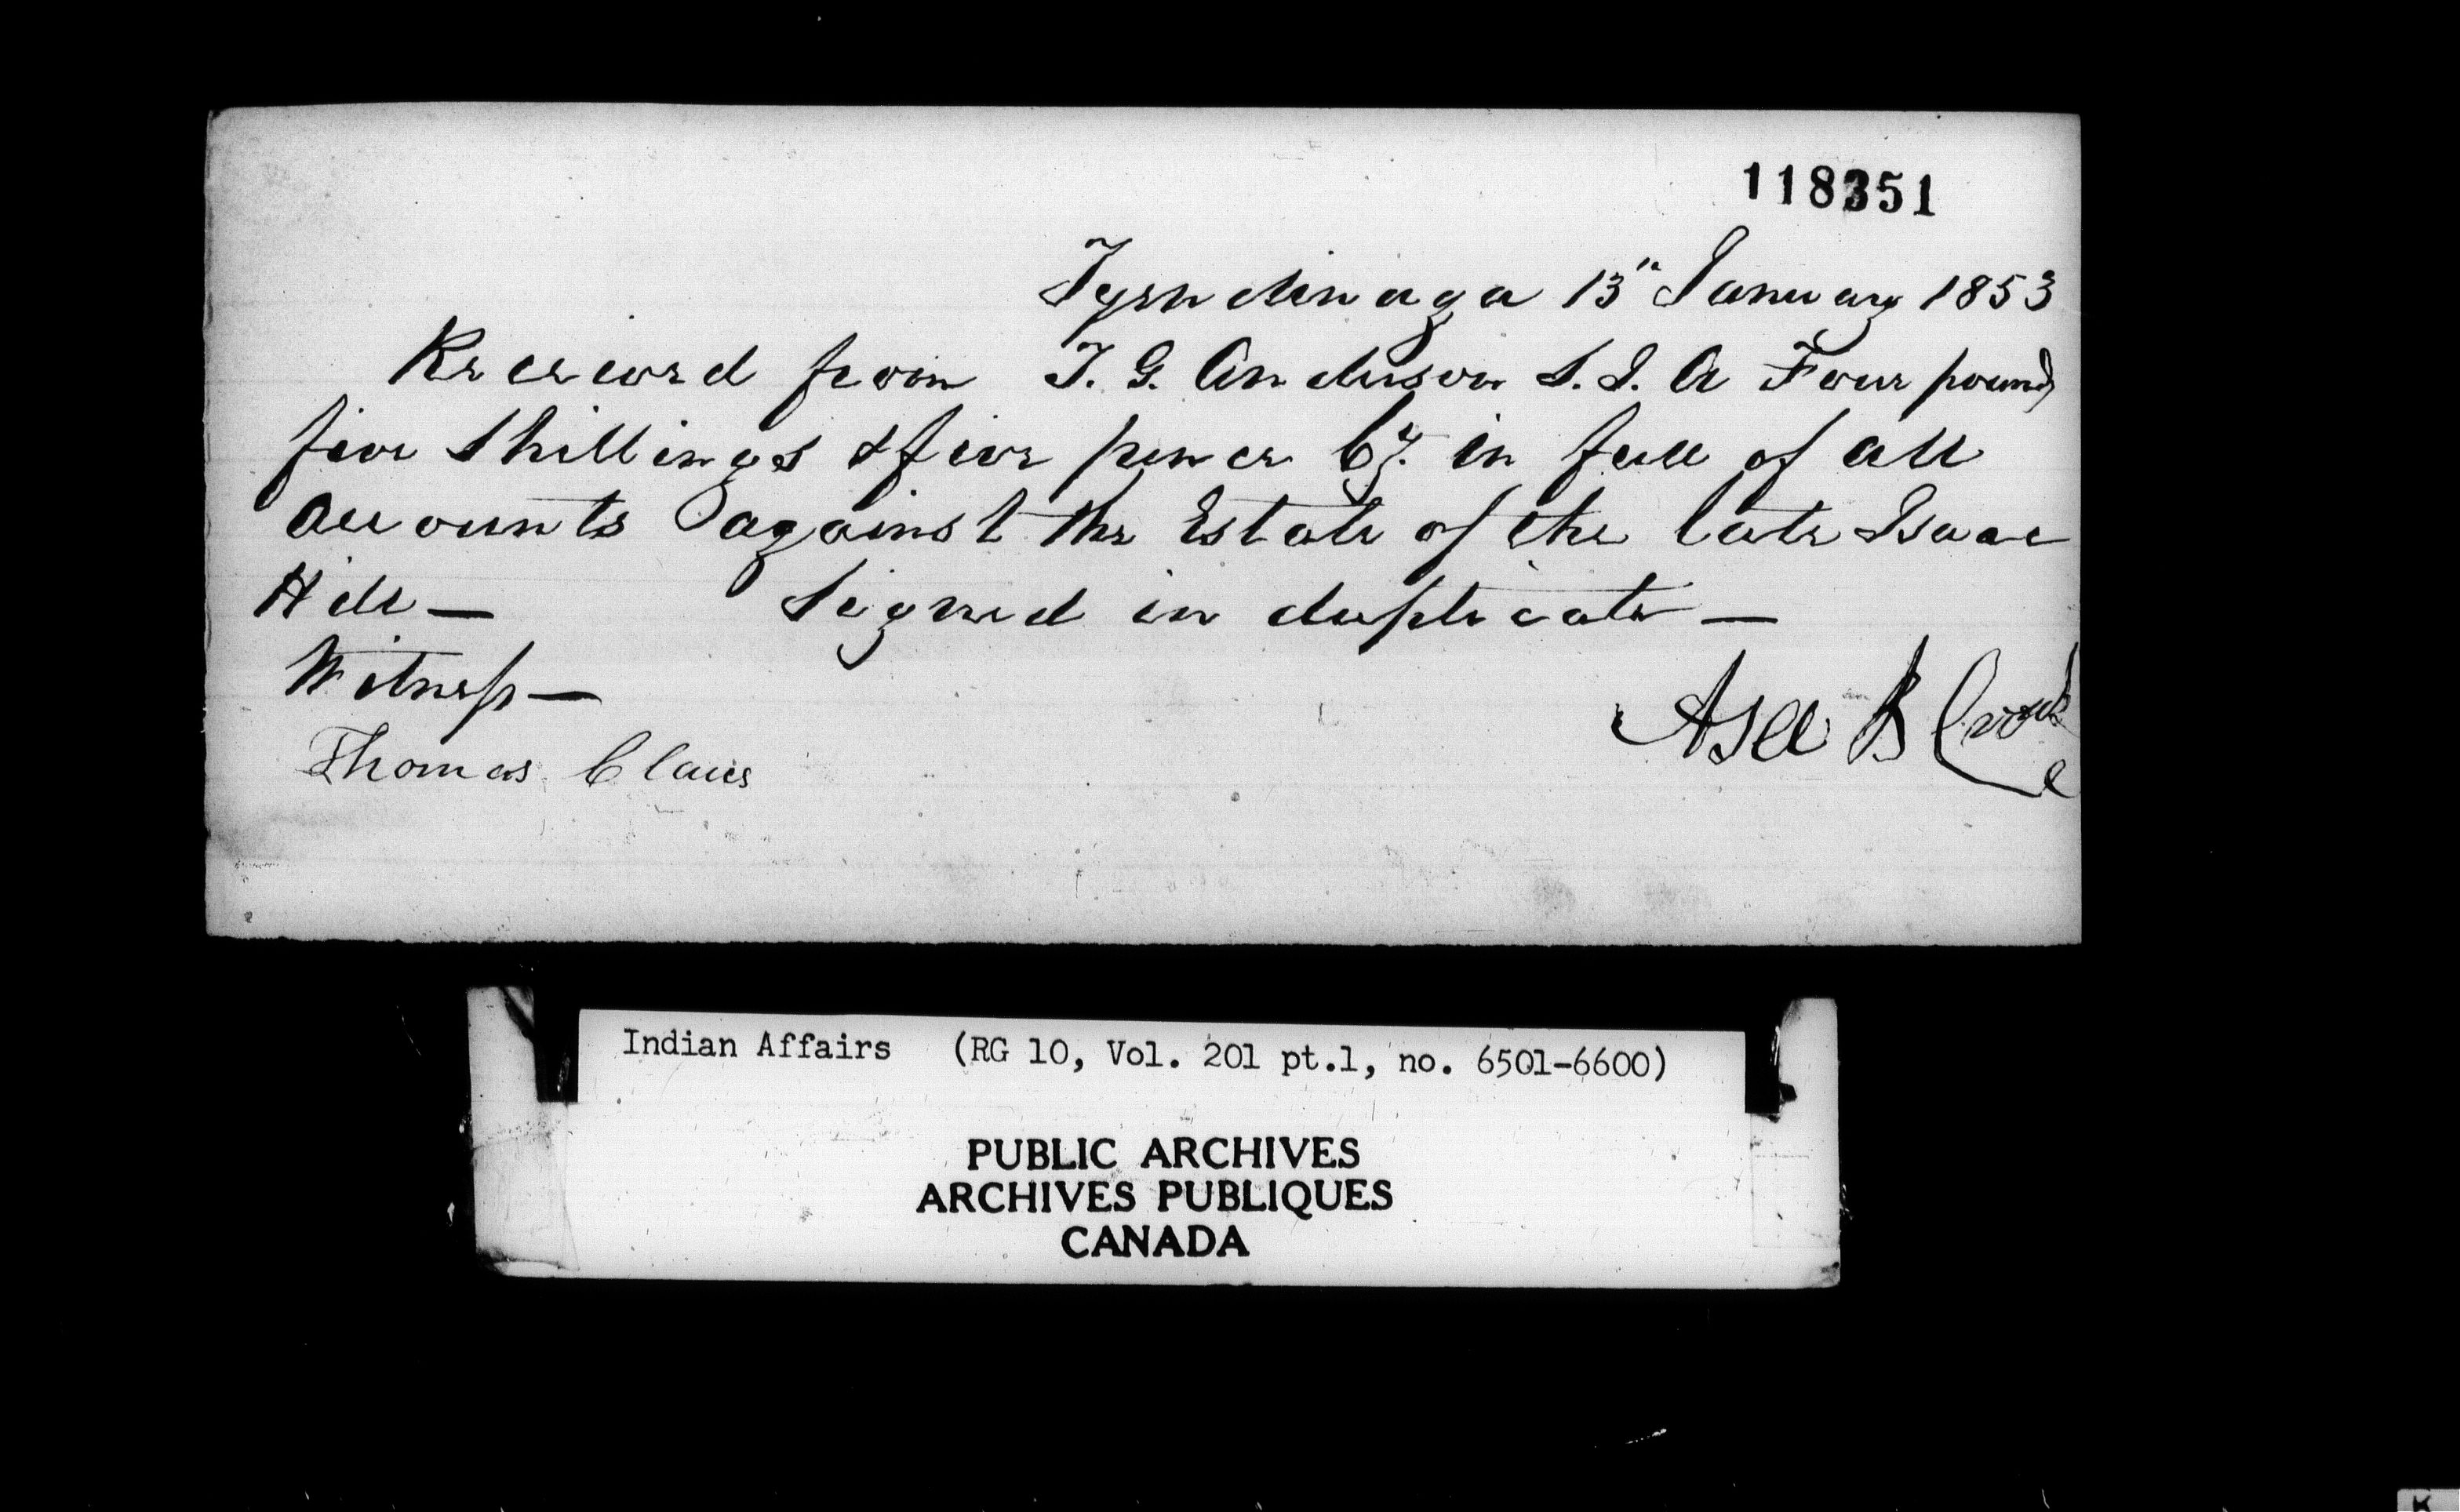 118351
Tyendinaga 13" January 1853
Received from T. G. Anderson S. I. A Four pounds
five Shillings & five pence Cy. in full of all
Accounts against the Estate of the late Isaac
Hill —
Signed in duplicate —
Witness —
Asa B
Thomas Claus
Indian Affairs (RG 10, Vol. 201 pt.1, no. 6501-6600)
PUBLIC ARCHIVES
ARCHIVES PUBLIQUES
CANADA
K